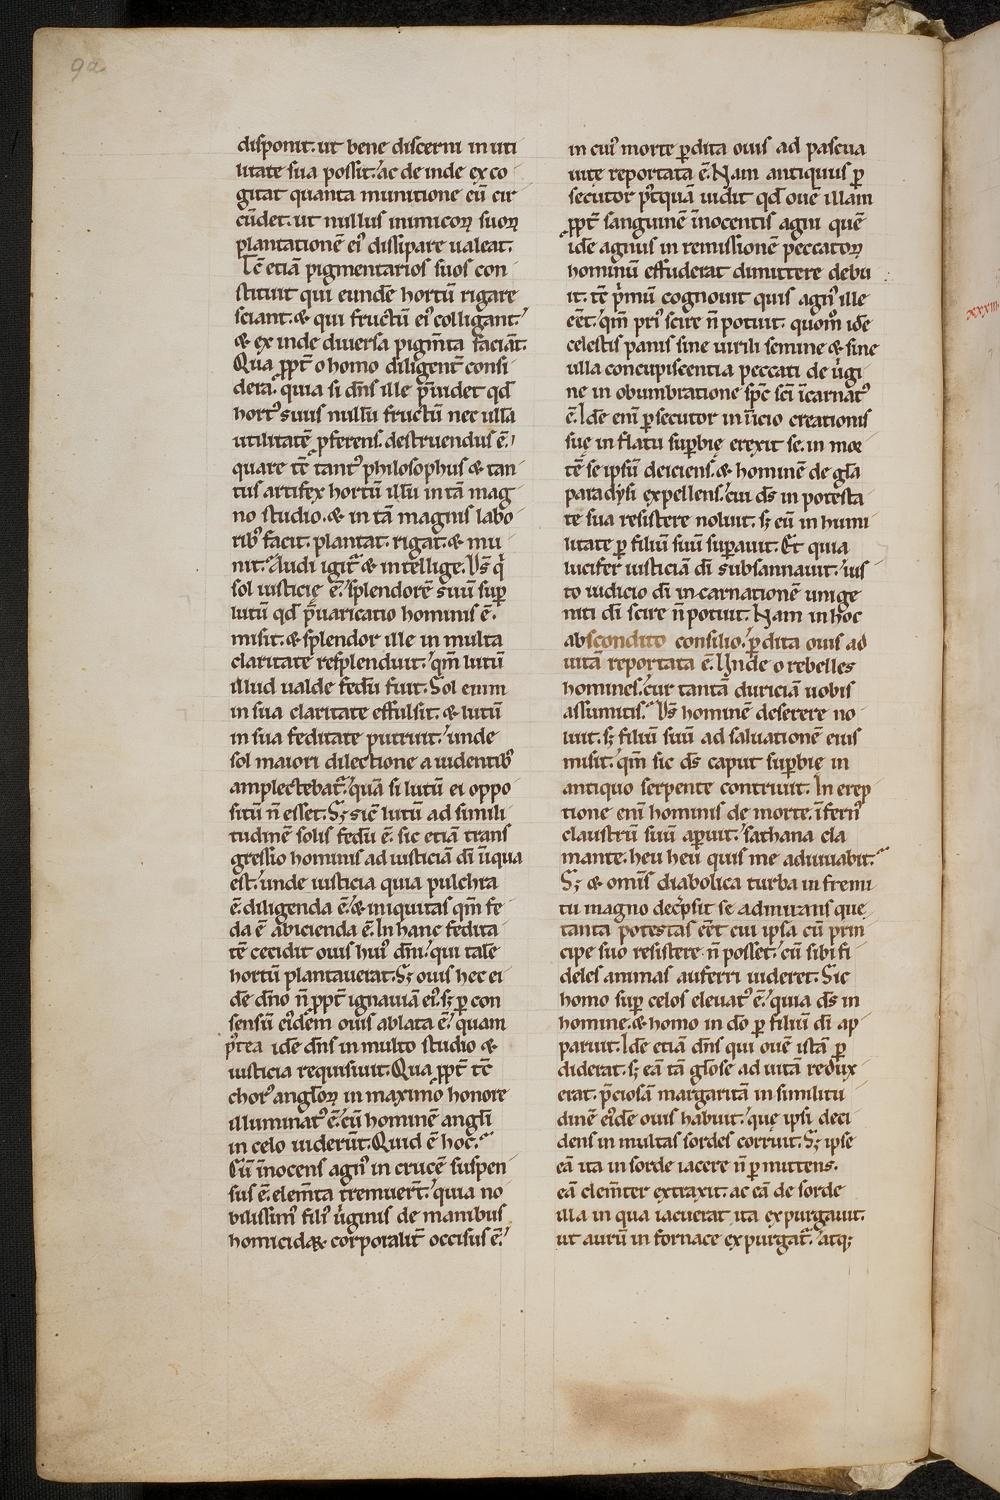 9a
disponit. ut bene discerni in uti
litate sua possit. ac deinde exco
gitat quanta munitione eū cir
cūdet. ut nullus inimicoꝝ suoꝝ
plantationē ei᾽ dissipare ualeat.
Tc̄ etiā pigmentarios suos con
stituit qui eundē hortū rigare
sciant. & qui fructū ei᾽ colligant.
& ex inde diuersa pigm̄ta faciāt.
Qua ꝓpt̄ o homo diligent̄ consi
dera. quia si dn̄s ille p̄uidet qd̄
hort᾽ suus nullū fructū nec ullā
utilitatē ꝓferens. destruendus ē.
quare tc̄ tant᾽ philosophus & tan
tus artifex hortū illū in tā mag
no studio. & in tā magnis labo
rib᾽ facit. plantat. rigat. & mu
nit. Audi igit᾽ & intellige. Ds̄ q̇
sol iusticię ē. splendorē suū sup̄
lutū qd̄ p̄uaricatio hominis ē.
misit. & splendor ille in multa
claritate resplenduit. qm̄ lutū
illud ualde fedū fuit. Sol enim
in sua claritate effulsit. & lutū
in sua feditate putruit. unde
sol maiori dilectione a uidentib᾽
amplectebat᾽. quā si lutū ei oppo
sitū n̄ esset. Sꝫ sic̄ lutū ad simili
tudinē solis fedū ē. sic etiā trans
gressio hominis ad iusticiā di̅ in̄iqua
est. unde iusticia quia pulchra
ē. diligenda ē. & iniquitas qm̄ fe
da ē abicienda ē. In hanc fedita
tē cecidit ouis hui᾽ dn̄i. qui talē
hortū plantauerat. Sꝫ ouis hec ei
dē dn̄o n̄ ꝓpt̄ ignauiā ei᾽. sꝫ ꝑ con
sensū ei᾽dem ouis ablata ē. quam
p᾽tea idē dn̄s in multo studio &
iusticia requisiuit. Qua ꝓpt̄ tc̄
chor᾽ angl̄oꝝ in maximo honore
illuminat᾽ ē. cū hominē angl̄i
in celo uiderūt. Quid ē hoc.
Cū in̄ocens agn᾽ in crucē suspen
sus ē. elem̄ta tremuer̄t. quia no
bilissim᾽ fili᾽ uirginis de manibus
homicidaꝝ corporalit̄ occisus ē.
in cui᾽ morte ꝑdita ouis ad pascua
uite reportata ē. Nam antiquus ꝑ
secutor p᾽tquā uidit qd̄ ouē illam
ꝓpt̄ sanguinē in̄ocentis agni quē
idē agnus in remissionē peccatoꝝ
hominū effuderat dimittere debu
it. tc̄ p̓mū cognouit quis agn᾽ ille
eēt. qm̄ pri᾽ scire n̄ potuit. quom̊ idē
celestis panis sine uirili semine & sine
ulla concupiscentia peccati de uirgi
ne in obumbratione sp̄c sc̄i in̄carnat᾽
ē. Idē eni̅ ꝑsecutor in in̄icio creationis
suę in flatu sup̄bię erexit se. in mor
tē se ipsū deiciens. & hominē de gl̄a
paradysi expellens. cui ds̄ in potesta
te sua resistere noluit. sꝫ eū in humi
litate ꝑ filiū suū sup̄auit. Et quia
lucifer iusticiā di̅ subsannauit. ius
to iudicio di̅ incarnationē unige
niti di̅ scire n̄ potuit. Nam in hoc
abscondito consilio. ꝑdita ouis ad
uitā reportata ē. Unde o rebelles
homines. cur tantā duriciā uobis
assumitis. Ds̄ hominē deserere no
luit. sꝫ filiū suū ad saluationē eius
misit. qm̄ sic ds̄ caput sup̄bię in
antiquo serpente contriuit. In erep
tione eni̅ hominis de morte. in̄fern᾽
claustrū suū aperuit. sathana cla
mante. heu heu quis me adiuuabit.
Sꝫ & omīs diabolica turba in fremi
tu magno dec̄psit se admirans que
tanta potestas eēt cui ipsa cū prin
cipe suo resistere n̄ posset. cū sibi fi
deles animas auferri uideret. Sic
homo sup̄ celos eleuat᾽ ē. quia ds̄ in
homine. & homo in do̅ ꝑ filiū di̅ ap
paruit. Idē etiā dn̄s qui ouē istā ꝑ
diderat. sꝫ eā tā gl̄ose ad uitā redux
erat. p̄ciosā margaritā in similitu
dinē ei᾽dē ouis habuit. quę ipsi deci
dens in multas sordes corruit. Sꝫ ipse
eā ita in sorde iacere n̄ ꝑmittens.
eā clem̄ter extraxit. ac eā de sorde
illa in qua iacuerat ita expurgauit.
ut aurū in fornace expurgat᾽. atqꝫ